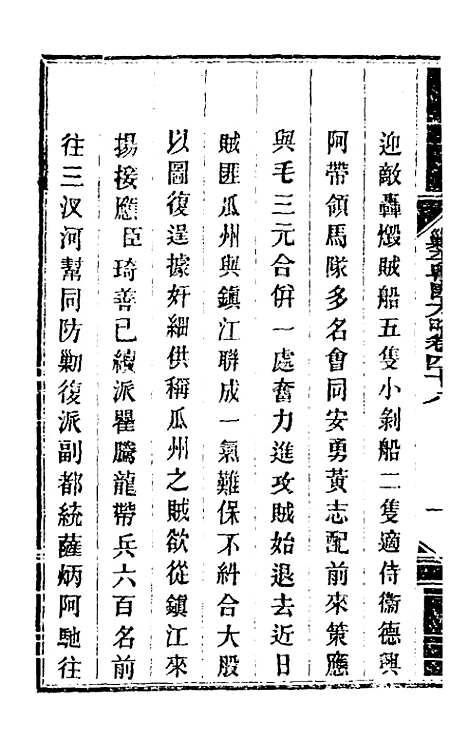 迎敵轟燬賊船五隻小剝船二隻適侍衞德興
阿帶領馬隊多名會同安勇黃志配前來策應
與毛三元合併一處奮力進攻賊始退去近日
賊匪瓜州與鎮江聯成一氣難保不糾合大股
以圖復逞據奸細供稱瓜州之賊欲從鎮江來
揚接應臣琦善已續派瞿騰龍帶兵六百名前
往三汊河幫同防勦復派副都統薩炳阿馳往